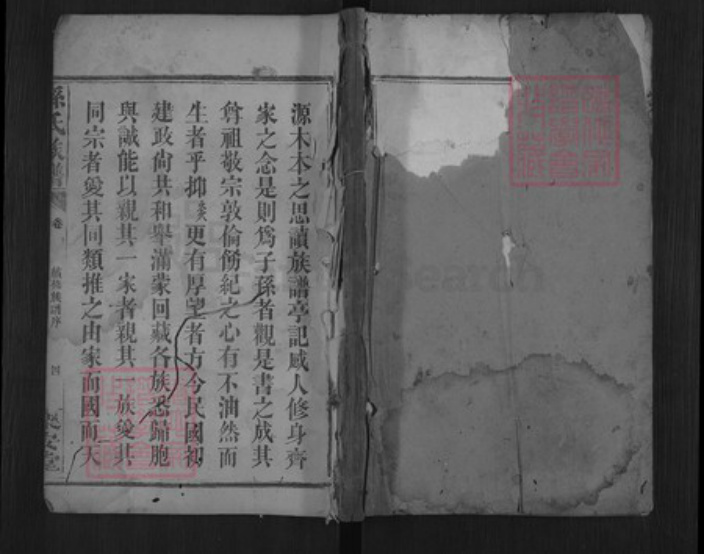 源木本之思讀族譜亭記感人修身齊
家之念是則爲子孫者觀是書之成其
尊祖敬宗敦倫飭紀之心有不油然而
生者乎抑炎更有厚望者方今民國初
建政尙共和舉滿蒙回藏各族悉歸胞
與誠能以親其一家者親其一族愛其
同宗者愛其同類推之由家而國而天
孫氏族譜
卷
續修族譜序
四